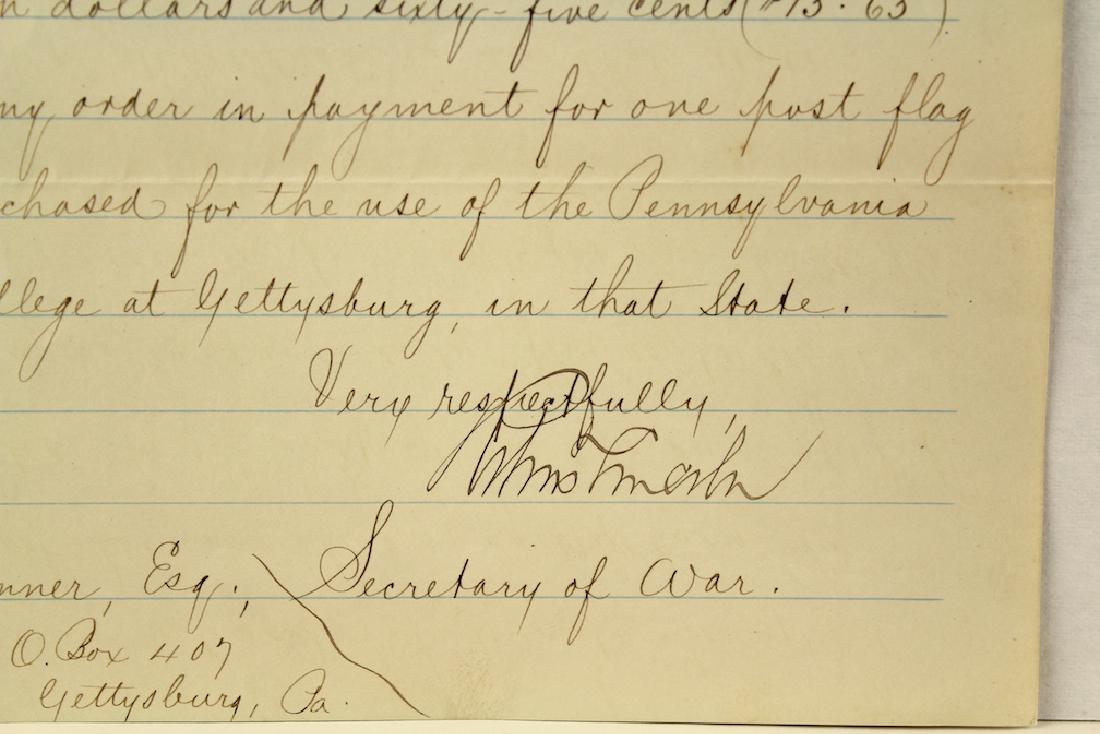 n dollars and sixty-five cents ($13.65)
my order in payment for one post flag
chased for the use of the Pennsylvania
llege at Gettysburg, in that State.
Very respectfully,
Secretary of War.
nner, Esq.,
O. Box 407
Gettysburg, Pa.